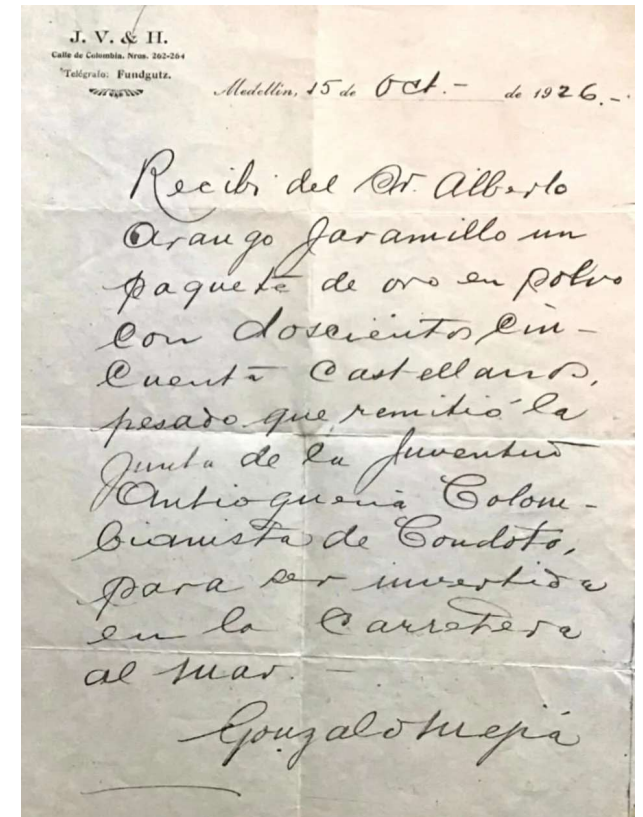 J. V. & H.
Calle de Colombia. Nros. 262-264
Telégrafo: Fundgutz.
Medellín, 15 de Oct.- de 1926.-
Recibi del Sr. Alberto
Arango Jaramillo un
paquete de oro en polvo
con doscientos cin-
cuenta castellanos,
pesado que remitió la
Junta de la Juventud
Antioqueña Colom-
bianista de Condoto,
para ser invertida
en la Carretera
al mar. -
Gonzalo Mejía